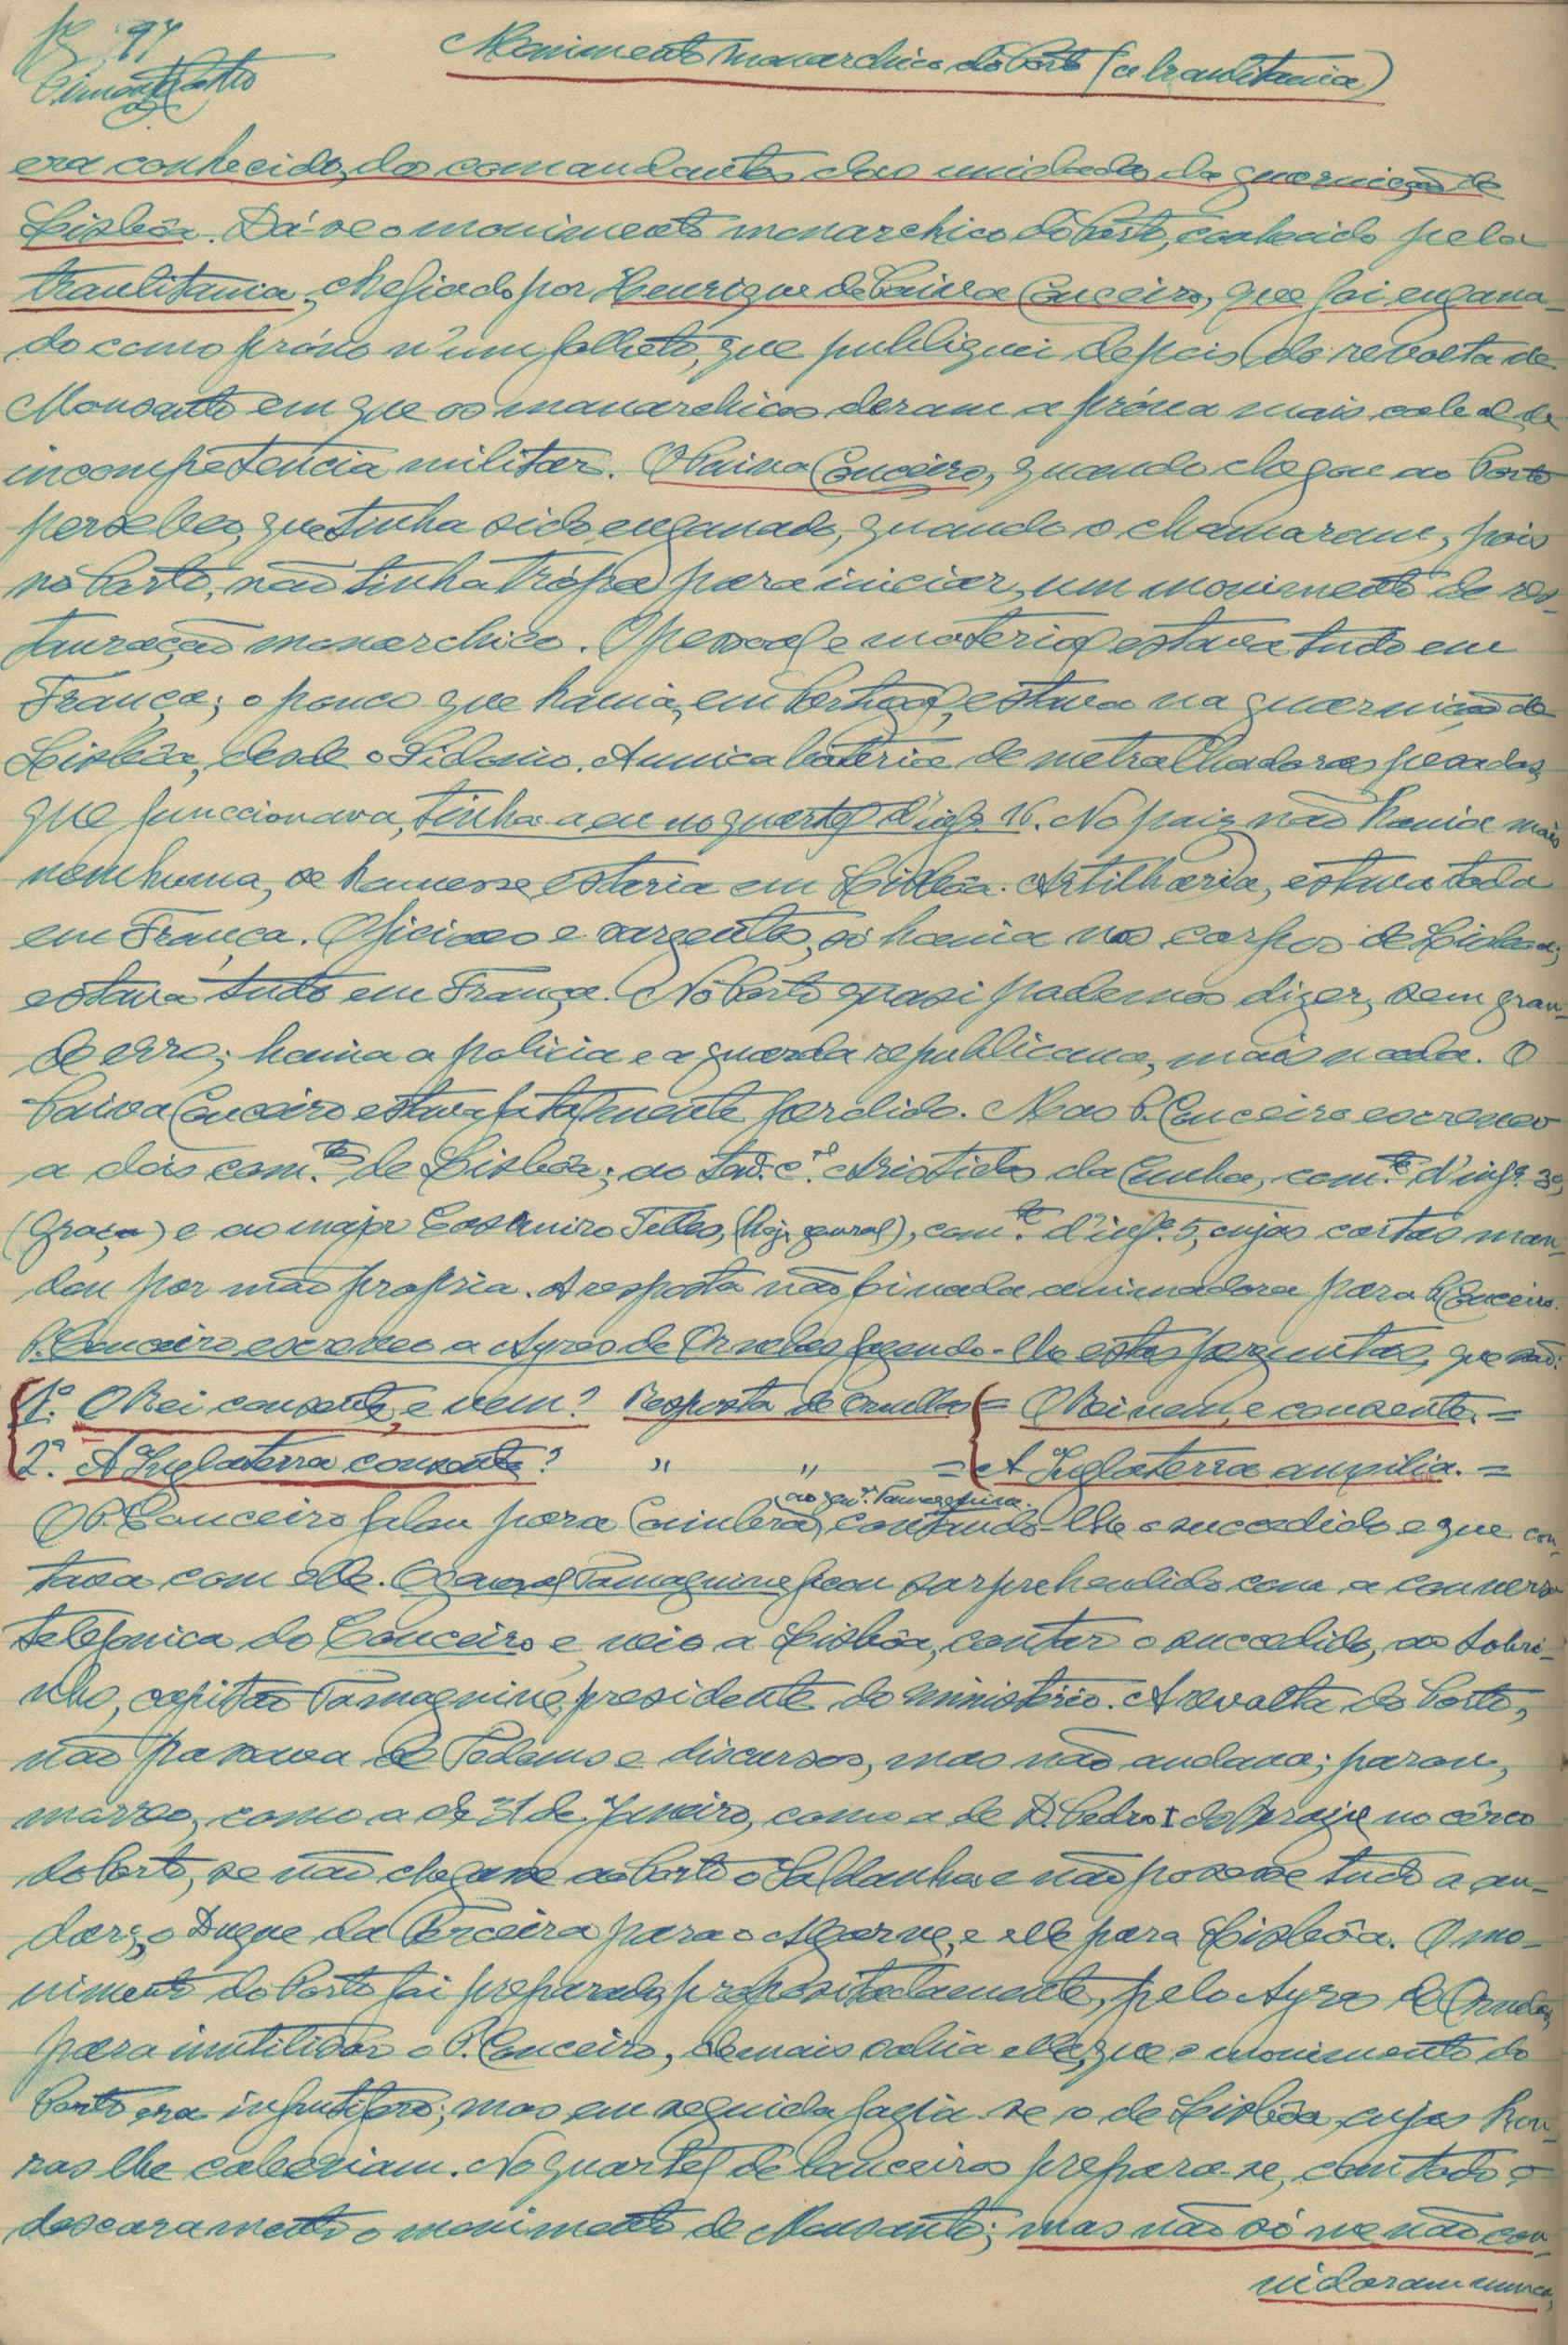 fl. 97
Movimento monarchico do Porto (a traulitania)
era conhecido, dos comandantes das unidades da guarnição de
Lisbôa. Dá-se o movimento monarchico do Porto, conhecido pela
traulitania, chefiado por Henrique de Paiva Couceiro, que foi engana-
do como próvo n'um folheto, que publiquei depois da revolta de
Monsanto em que os monarchicos deram a próva mais cabal de
incompetencia militar. O Paiva Couceiro, quando chegou ao Porto
percebeo, que tinha sido enganado, quando o chamaram, pois
no Porto, não tinha trópa para iniciar, um movimento de res-
tauração monarchico. O pessoal e material estava tudo em
França; o pouco que havia, em Portugal, estava na guarnição de
Lisbôa, desde o Sidonio. A unica bateria de metralhadoras pesadas,
que funccionava, tinha-a eu no quartel d'inf.ª 16. No paiz não havia mais
nemhuma, se houvesse estaria em Lisbôa. Artilharia, estava toda
em França. Oficiaes e sargentos, só havia nos corpos de Lisboa;
estava tudo em França. No Porto quasi podemos dizer, sem gran-
de erro; havia a policia e a guarda republicana, mais nada. O
Paiva Couceiro estava fatalmente perdido. Mas P. Couceiro escreveo
a dois com.tes de Lisbôa; ao ten. c.el Aristides da Cunha, com.te d'inf.ª 30,
(Graça) e ao major Casimiro Telles, (hoje general), com.te d'inf.ª 5, cujas cartas man-
dou por mão propria. A resposta não foi nada animadora para P. Couceiro.
P. Couceiro escreveo a Ayres de Ornelas fazendo-lhe estas perguntas, que são:
1.º O Rei consente, e vem? Resposta de Ornellas = O Rei vem, e consente. =
2.º A Inglaterra consente? " " = A Inglaterra auxilia. =
(ao gen.al Tamagnini.
O P. Couceiro falou para Coimbra, contando-lhe o succedido e que con-
tava com elle. O general Tamagnine ficou surprehendido com a conversa
telefonica do Couceiro e veio a Lisbôa, contar o succedido, ao sobri-
nho, capitão Tamagnine, presidente do ministerio. A revolta do Porto,
não passava de Te deuns e discursos, mas não andava; parou,
morreo, como a de 31 de Janeiro, como a de D. Pedro I do Brazil no cêrco
do Porto, se não chegasse ao Porto o Saldanha e não posesse tudo a an-
dar; o Duque da Terceira para o Algarve, e elle para Lisbôa. O mo-
vimento do Porto foi preparado, propositadamente, pelo Ayres de Ornelas,
para inutilisar o P. Couceiro, demais sabia elle, que o movimento do
Porto era infrutifero; mas em seguida fazia-se o de Lisbôa, cujas hon-
ras lhe caberiam. No quartel de lanceiros prepara-se, com todo o
descaramento o movimento de Monsanto; mas não só me não con-
vidaram nunca,